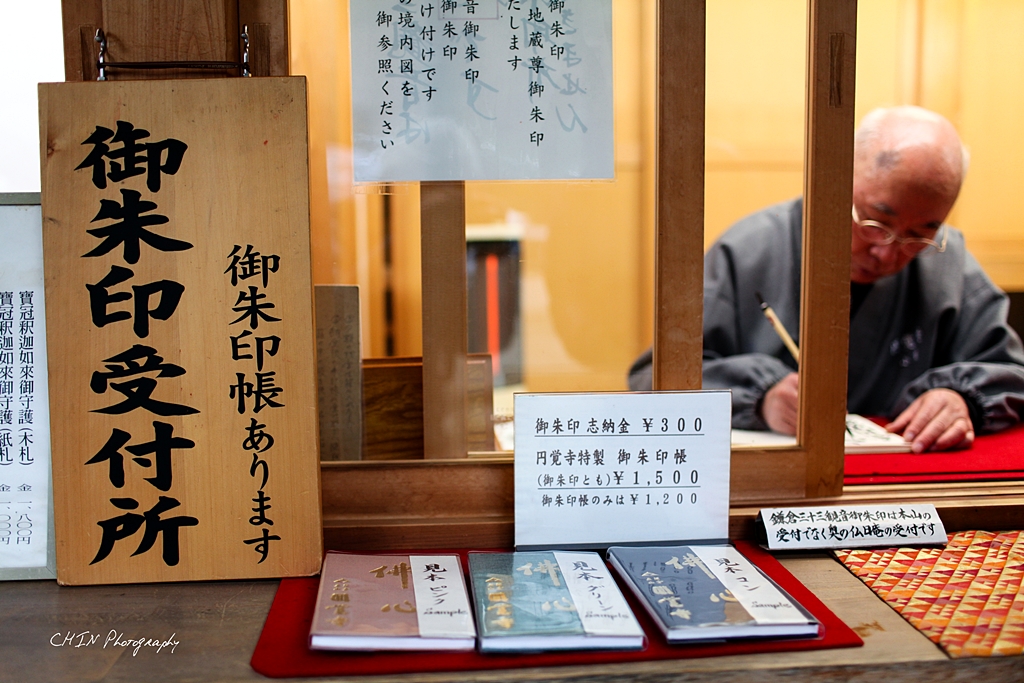 御朱印受付所
御朱印帳あります
寶冠釈迦如來御守護(木札)
寶冠釈迦如來御守護(紙札)
御朱印
地蔵尊御朱印
たします
音御朱印
御朱印
け付けです
の境内図を
御参照ください
御朱印 志納金 ¥300
円覚寺特製 御朱印帳
(御朱印とも)¥1,500
御朱印帳のみは¥1,200
鎌倉三十三観音御朱印は本山の
受付でなく奥の仏日庵の受付です
見本 ピンク Sample
佛心
見本 グリーン Sample
佛心
見本 コン Sample
佛心
CHIN Photography